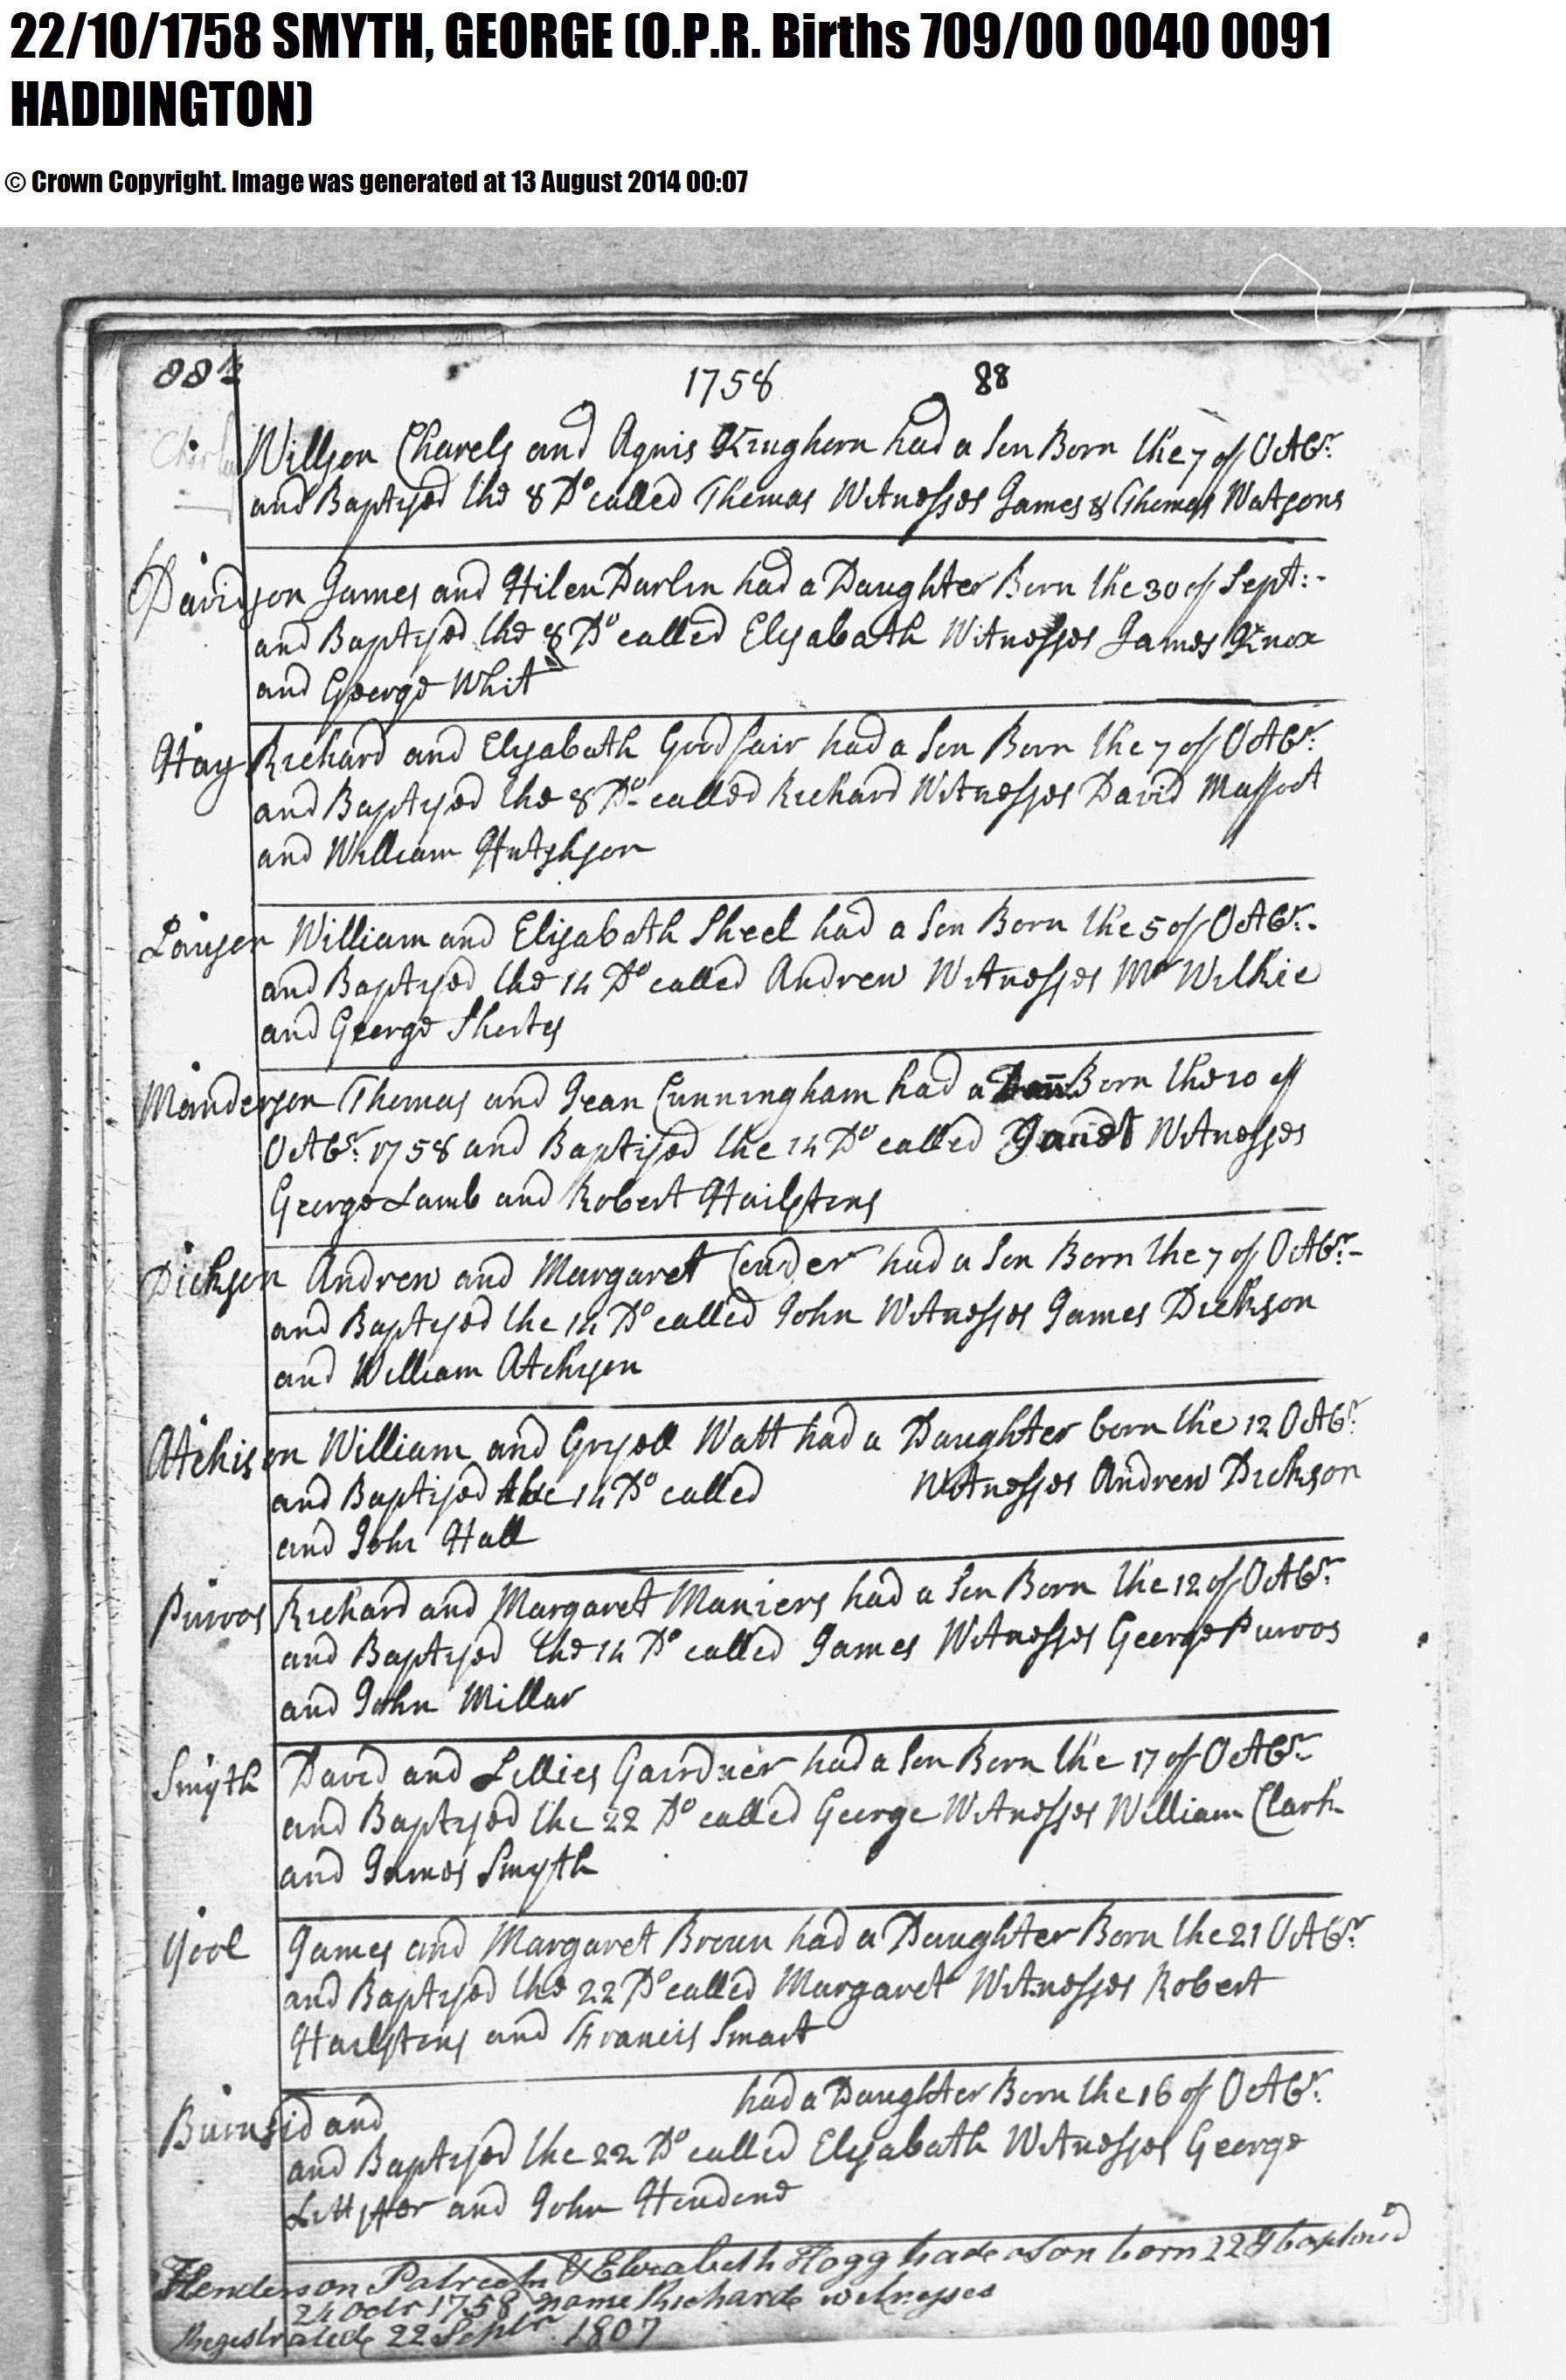 22/10/1758 SMYTH, GEORGE (O.P.R. Births 709/00 0040 0091
HADDINGTON)
© Crown Copyright. Image was generated at 13 August 2014 00:07
1758 88
Willson Charels and Agnis Kinghorn had a Son Born the 7 of Octbr:
and Baptysed the 8 Do called Thomas Witnesses James & Thomas Watsons
Davidson James and Hilen Darlin had a Daughter Born the 30 of Sept:-
and Baptysed the 8 Do called Elysabath Witnesses James Knox
and George Whit
Hay Richard and Elysabath Goodfair had a Son Born the 7 of Octbr:
and Baptysed the 8 Do called Richard Witnesses David
and William Hutshson
William and Elisabath Sheel had a Son Born the 5 of Octbr.
and Baptysed the 14 Do called Andrew Witnesses Mr Wilkie
and George Shorts
Manderson Thomas and Jean Cunningham had a Born the 10 of
Octbr: 1758 and Baptised the 14 Do called Janet Witnesses
George Lamb and Robert Hailstens
Dickson Andrew and Margaret had a Son Born the 7 of Octbr:-
and Baptysed the 14 Do called John Witnesses James Dickson
and William Atchison
Atchison William and Grysell Watt had a Daughter born the 12 Octbr:
and Baptised the 14 Do called Witnesses Andrew Dickson
and John Hall
Purvos Richard and Margaret Maniers had a Son Born the 12 of Octbr:
and Baptysed the 14 Do called James Witnesses George Purvos
and John Millar
Smyth David and Lillies Gairdner had a Son Born the 17 of Octbr:
and Baptysed the 22 Do called George Witnesses William Clark
and James Smyth
Yool James and Margaret Broun had a Daughter Born the 21 Octbr:
and Baptysed the 22 Do called Margaret Witnesses Robert
Hailstens and Francis Smart
Burnsid and had a Daughter Born the 16 of Octbr:
and Baptysed the 22 Do called Elysabath Witnesses George
and John
Henderson Patrick & Elizabeth Hogg hade a Son born 22 & baptised
24 Octr 1758 name Richard witnesses
Registrated 22 Septr. 1807